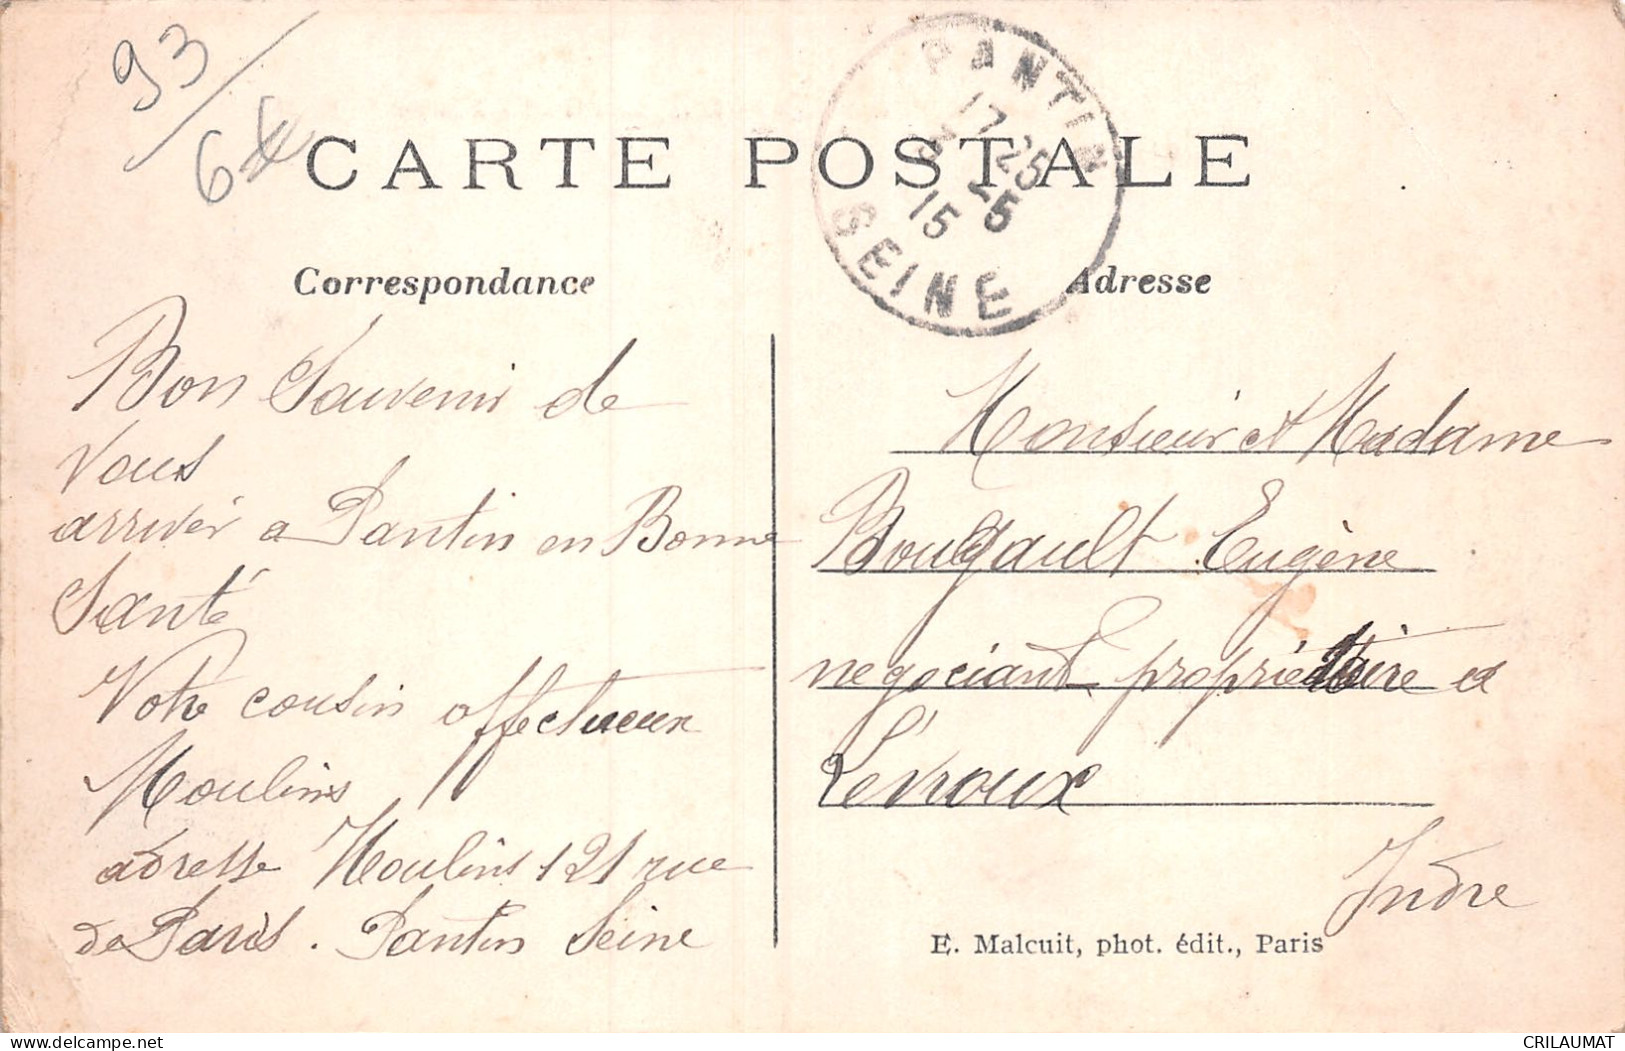 93
6
CARTE POSTALE
PANTIN
17 25
15 5
SEINE
Correspondance
Bon Souvenir de
Vous
arriver a Pantin en Bonne
Santé
Votre cousin affectueux
Moulins
adresse Moulins 121 rue
de Paris. Pantin Seine
Adresse
Monsieur et Madame
Bougault Eugène
negociant propriétaire a
Levroux
Indre
E. Malcuit, phot. édit., Paris
CRILAUMAT
delcampe.net